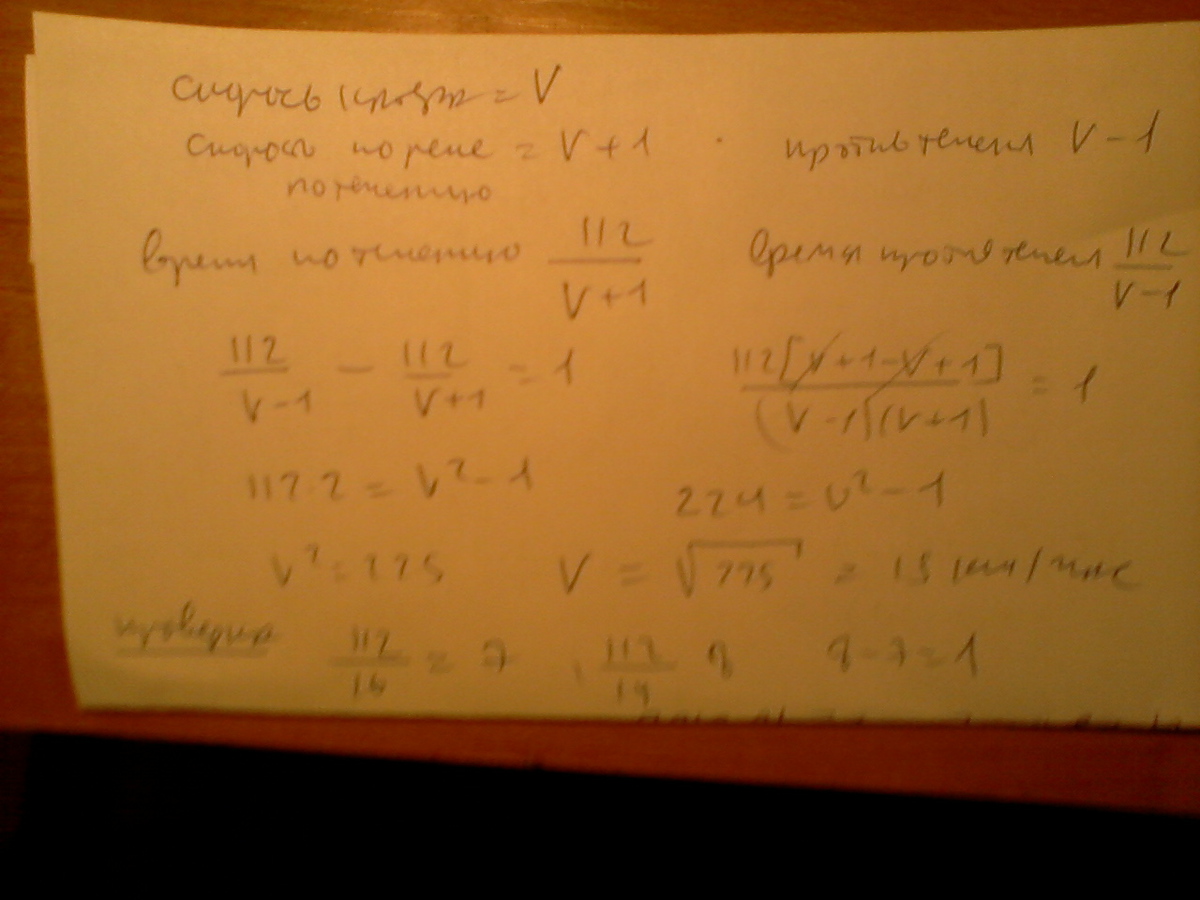 скорость = V
скорость по реке = V + 1 против течения V - 1
по течению
время по течению 112/(V+1) время против течения 112/(V-1)
112/(V-1) - 112/(V+1) = 1 112[V+1-V+1]/((V-1)(V+1)) = 1
112·2 = V² - 1 224 = V² - 1
V² = 225 V = √225 = 15 км/час
проверка 112/16 = 7, 112/14 8 8-7=1